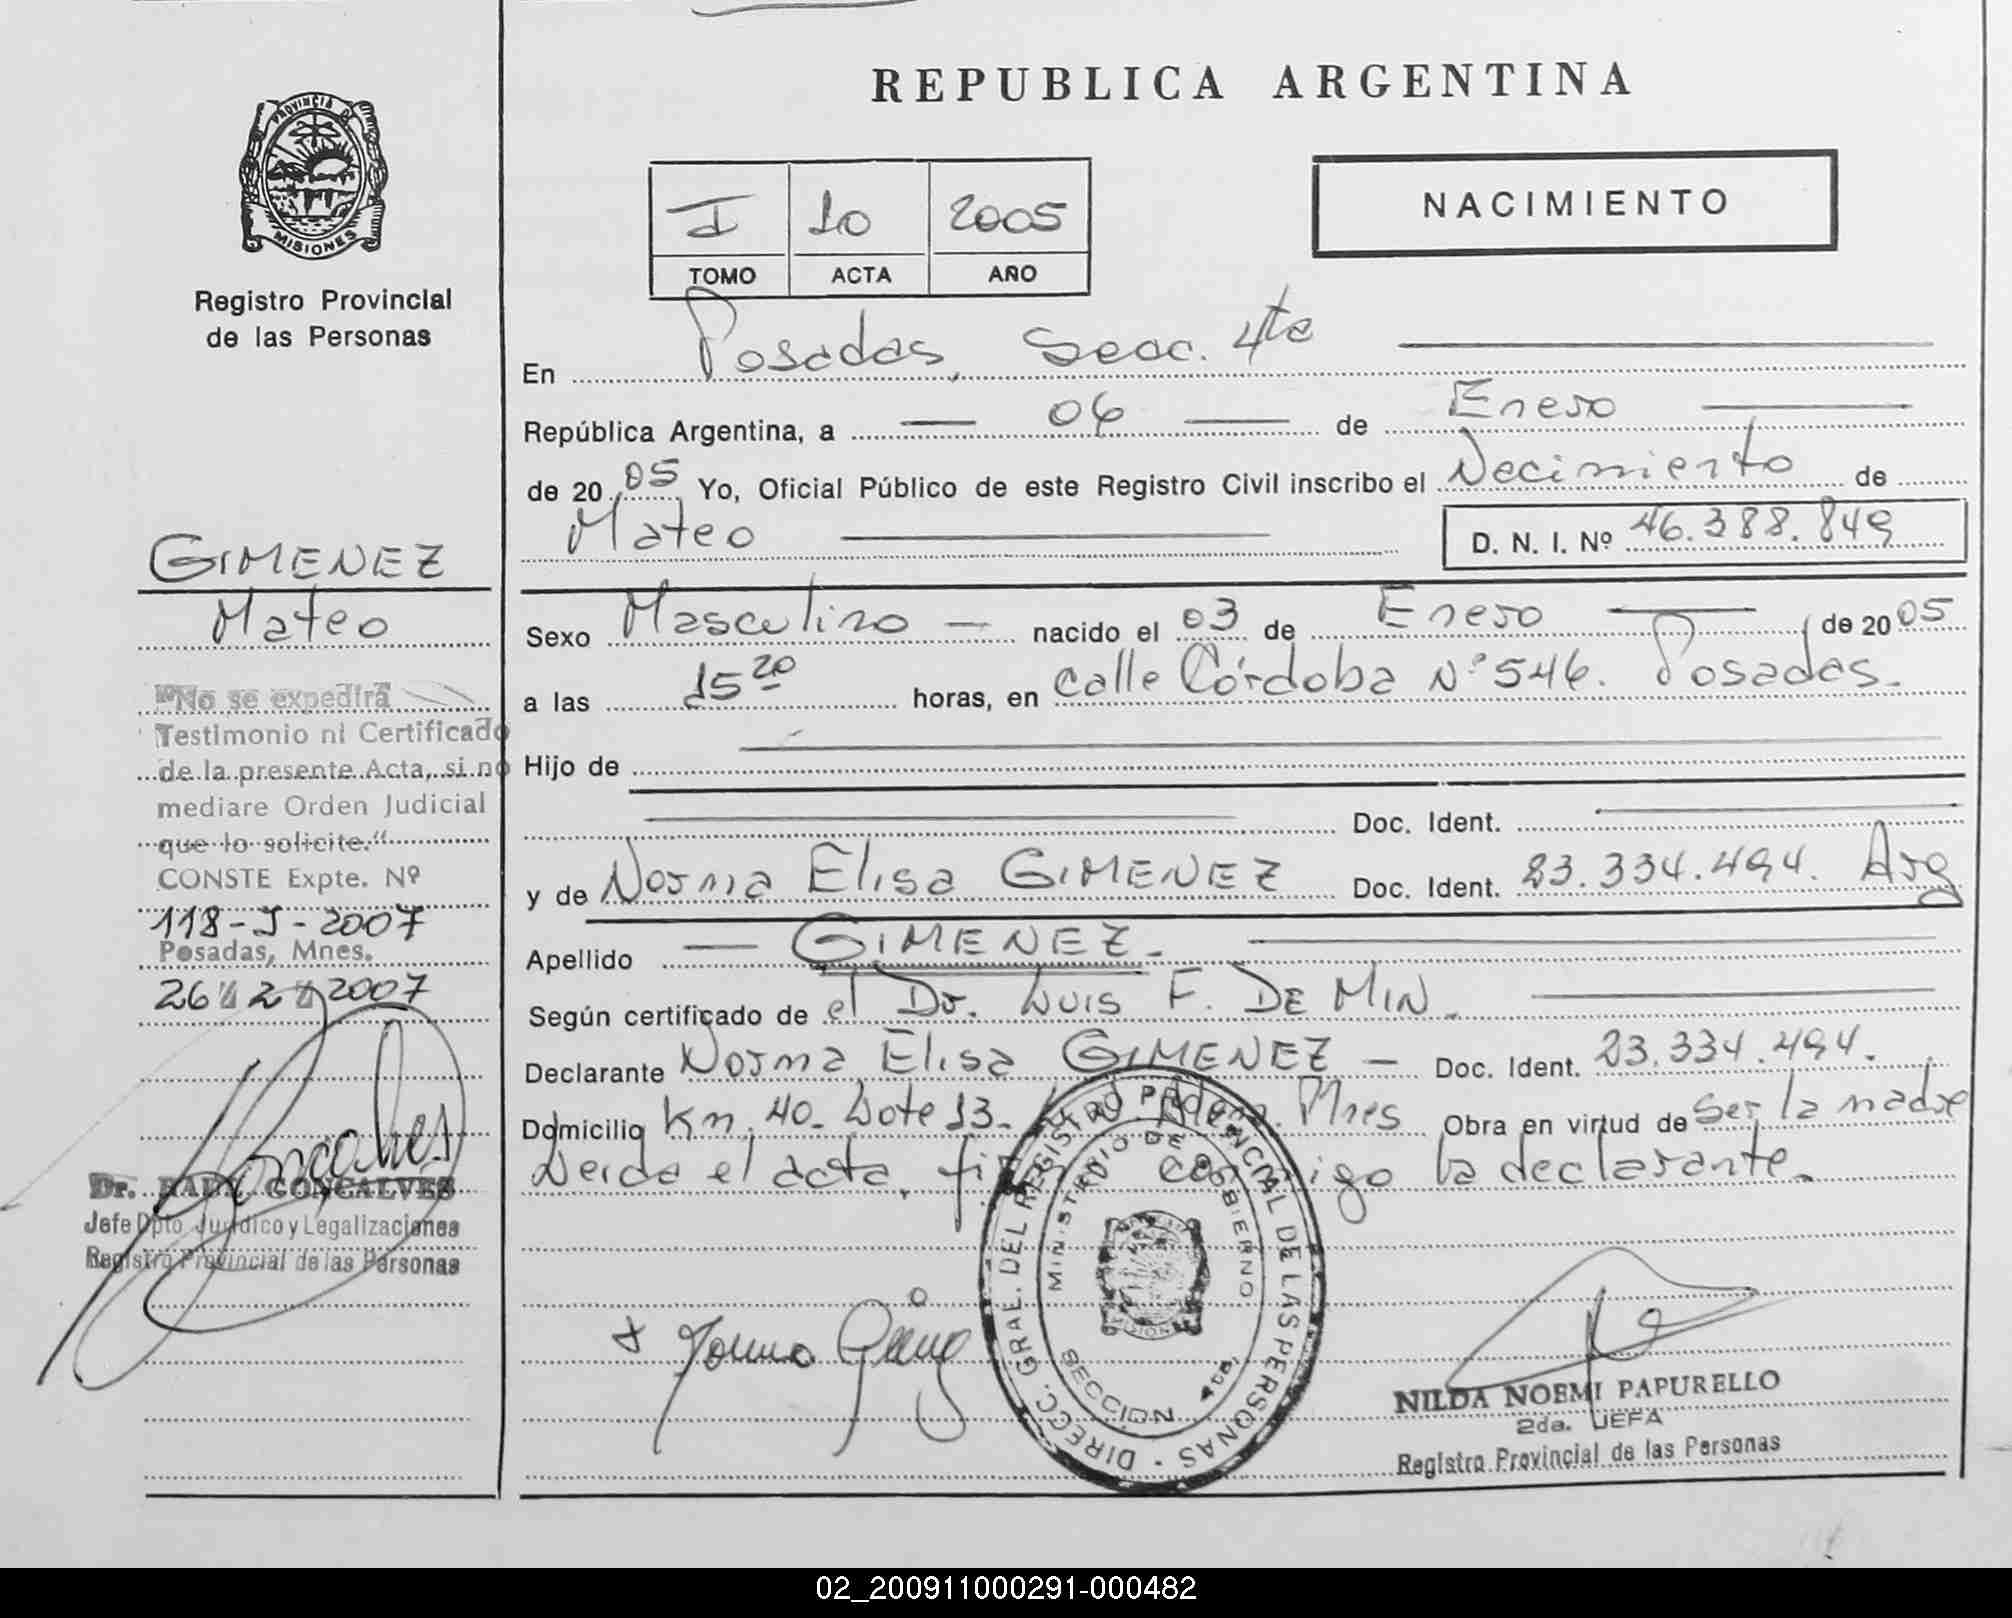 REPUBLICA ARGENTINA
PROVINCIA D
MISIONES
Registro Provincial
de las Personas
I 10 2005
TOMO ACTA AÑO
NACIMIENTO
En Posadas, Secc. 4ta
República Argentina, a 06 de Enero
de 2005 Yo, Oficial Público de este Registro Civil inscribo el Nacimiento de
Mateo D. N. I. Nº 46.388.849
Sexo Masculino nacido el 03 de Enero de 2005
a las 15 20 horas, en calle Córdoba Nº 546. Posadas.
Hijo de
Doc. Ident.
y de Norma Elisa GIMENEZ Doc. Ident. 23.334.494. Arg
Apellido GIMENEZ.
Según certificado de el Dr. Luis F. DE MIN.
Declarante Norma Elisa GIMENEZ Doc. Ident. 23.334.494.
Domicilio Km. 40. Lote 13. Mnes Obra en virtud de ser la madre
Leida el acta, conmigo la declarante.
GIMENEZ
Mateo
"No se expedirá
Testimonio ni Certificado
de la presente Acta, si no
mediare Orden Judicial
que lo solicite."
CONSTE Expte. Nº
118-J-2007
Posadas, Mnes.
26 2 2007
Dr. GONCALVES
Jefe Dpto. Jurídico y Legalizaciones
Registro Provincial de las Personas
DIRECC. GRAL. DEL REGISTRO PROVINCIAL DE LAS PERSONAS
MINISTERIO DE GOBIERNO
SECCION 4ta.
NILDA NOEMI PAPURELLO
2da. JEFA
Registro Provincial de las Personas
02_200911000291-000482